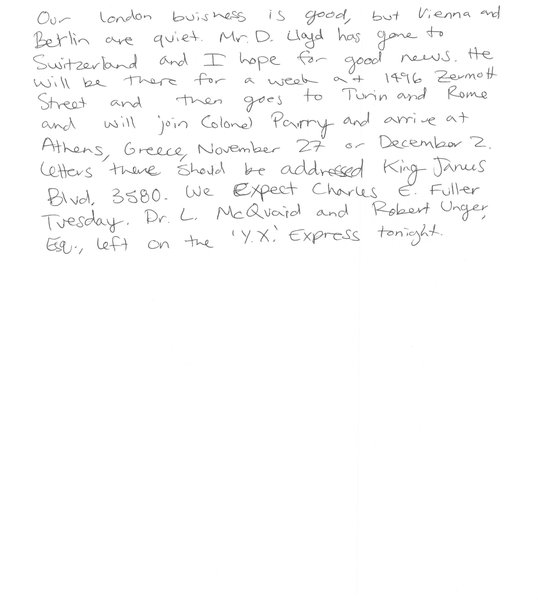 Our London buisness is good, but Vienna and
Berlin are quiet. Mr. D. Lloyd has gone to
Switzerland and I hope for good news. He
will be there for a week at 1496 Zermott
Street and then goes to Turin and Rome
and will join Colonel Parry and arrive at
Athens, Greece, November 27 or December 2.
Letters there should be addressed King James
Blvd. 3580. We Expect Charles E. Fuller
Tuesday. Dr. L. McQuaid and Robert Unger,
Esq., left on the 'Y.X.' Express tonight.